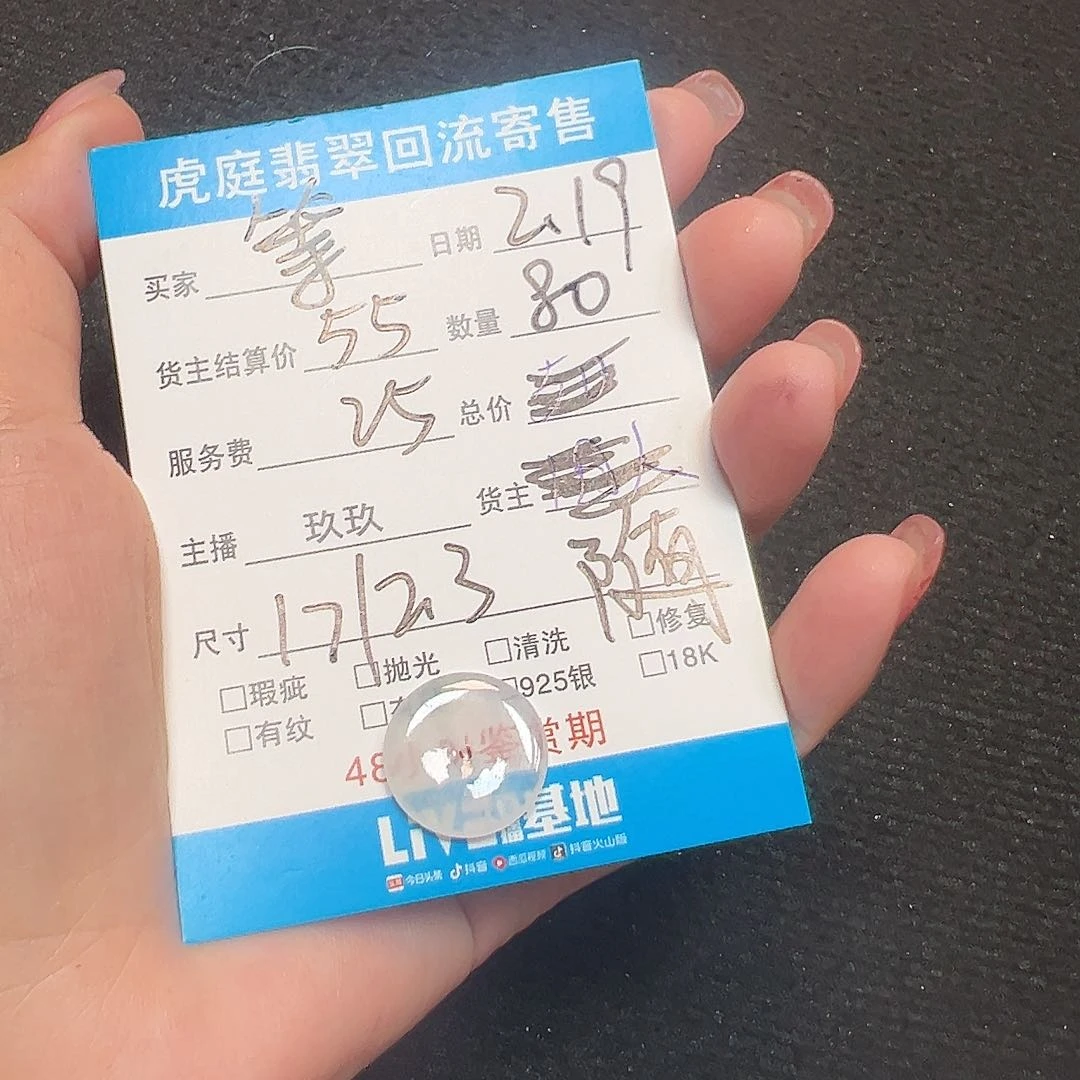 虎庭翡翠回流寄售
买家 日期 2.19
货主结算价 55 数量 80
服务费 25 总价
主播 玖玖 货主
尺寸 17/23 随
□瑕疵 □抛光 □清洗 □修复
□有纹 □ 925银 □18K
48小时鉴赏期
LIVE 播基地
今日头条 抖音 西瓜视频 抖音火山版